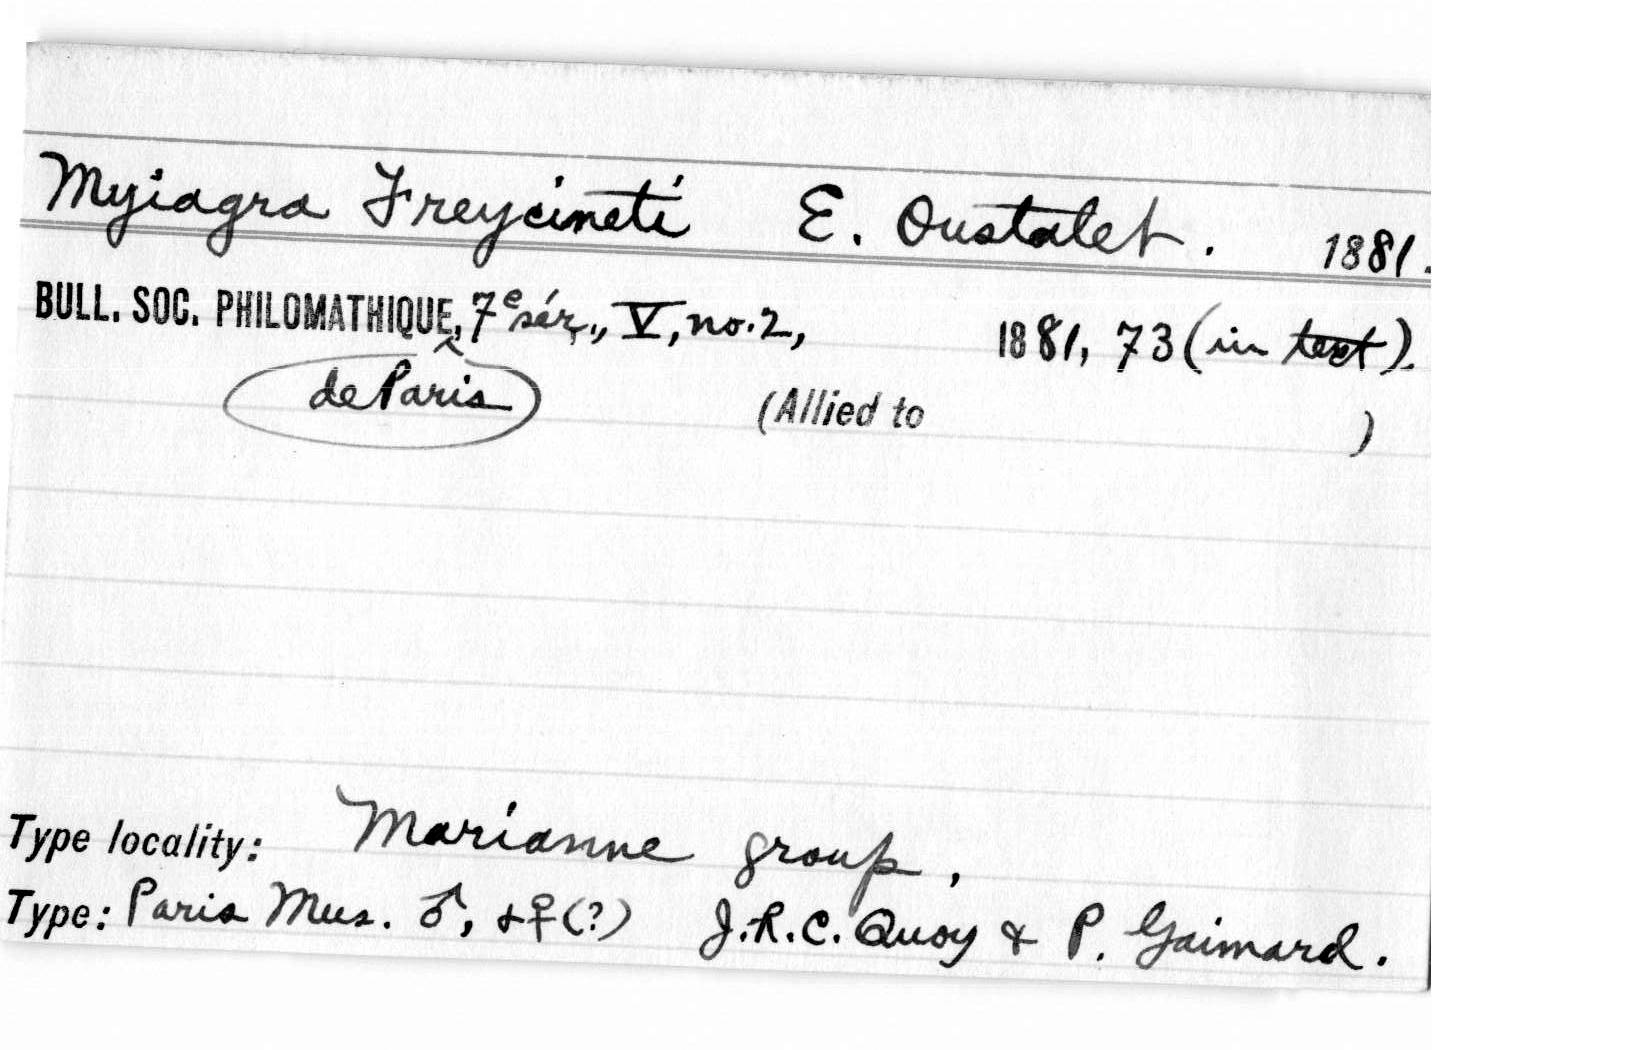 Myiagra Freycineti E. Oustalet. 1881.
BULL. SOC. PHILOMATHIQUE, 7e sér., V, no. 2, 1881, 73 (in text).
^
de Paris (Allied to )
Type locality: Marianne group,
Type: Paris Mus. ♂, & ♀ (?) J.R.C. Quoy & P. Gaimard.